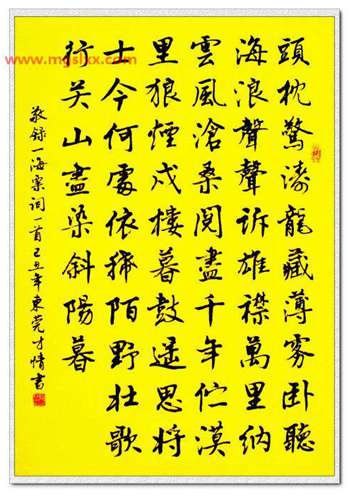 頭枕驚濤龍藏薄霧卧聽
海浪聲聲訴雄襟萬里納
雲風滄桑閱盡千年伫漠
里狼煙戍樓暮鼓遥思將
士今何處依稀陌野壮歌
行关山盡染斜陽暮
敬録一海粟词一首己丑年東莞才情書
www.mgslxx.com